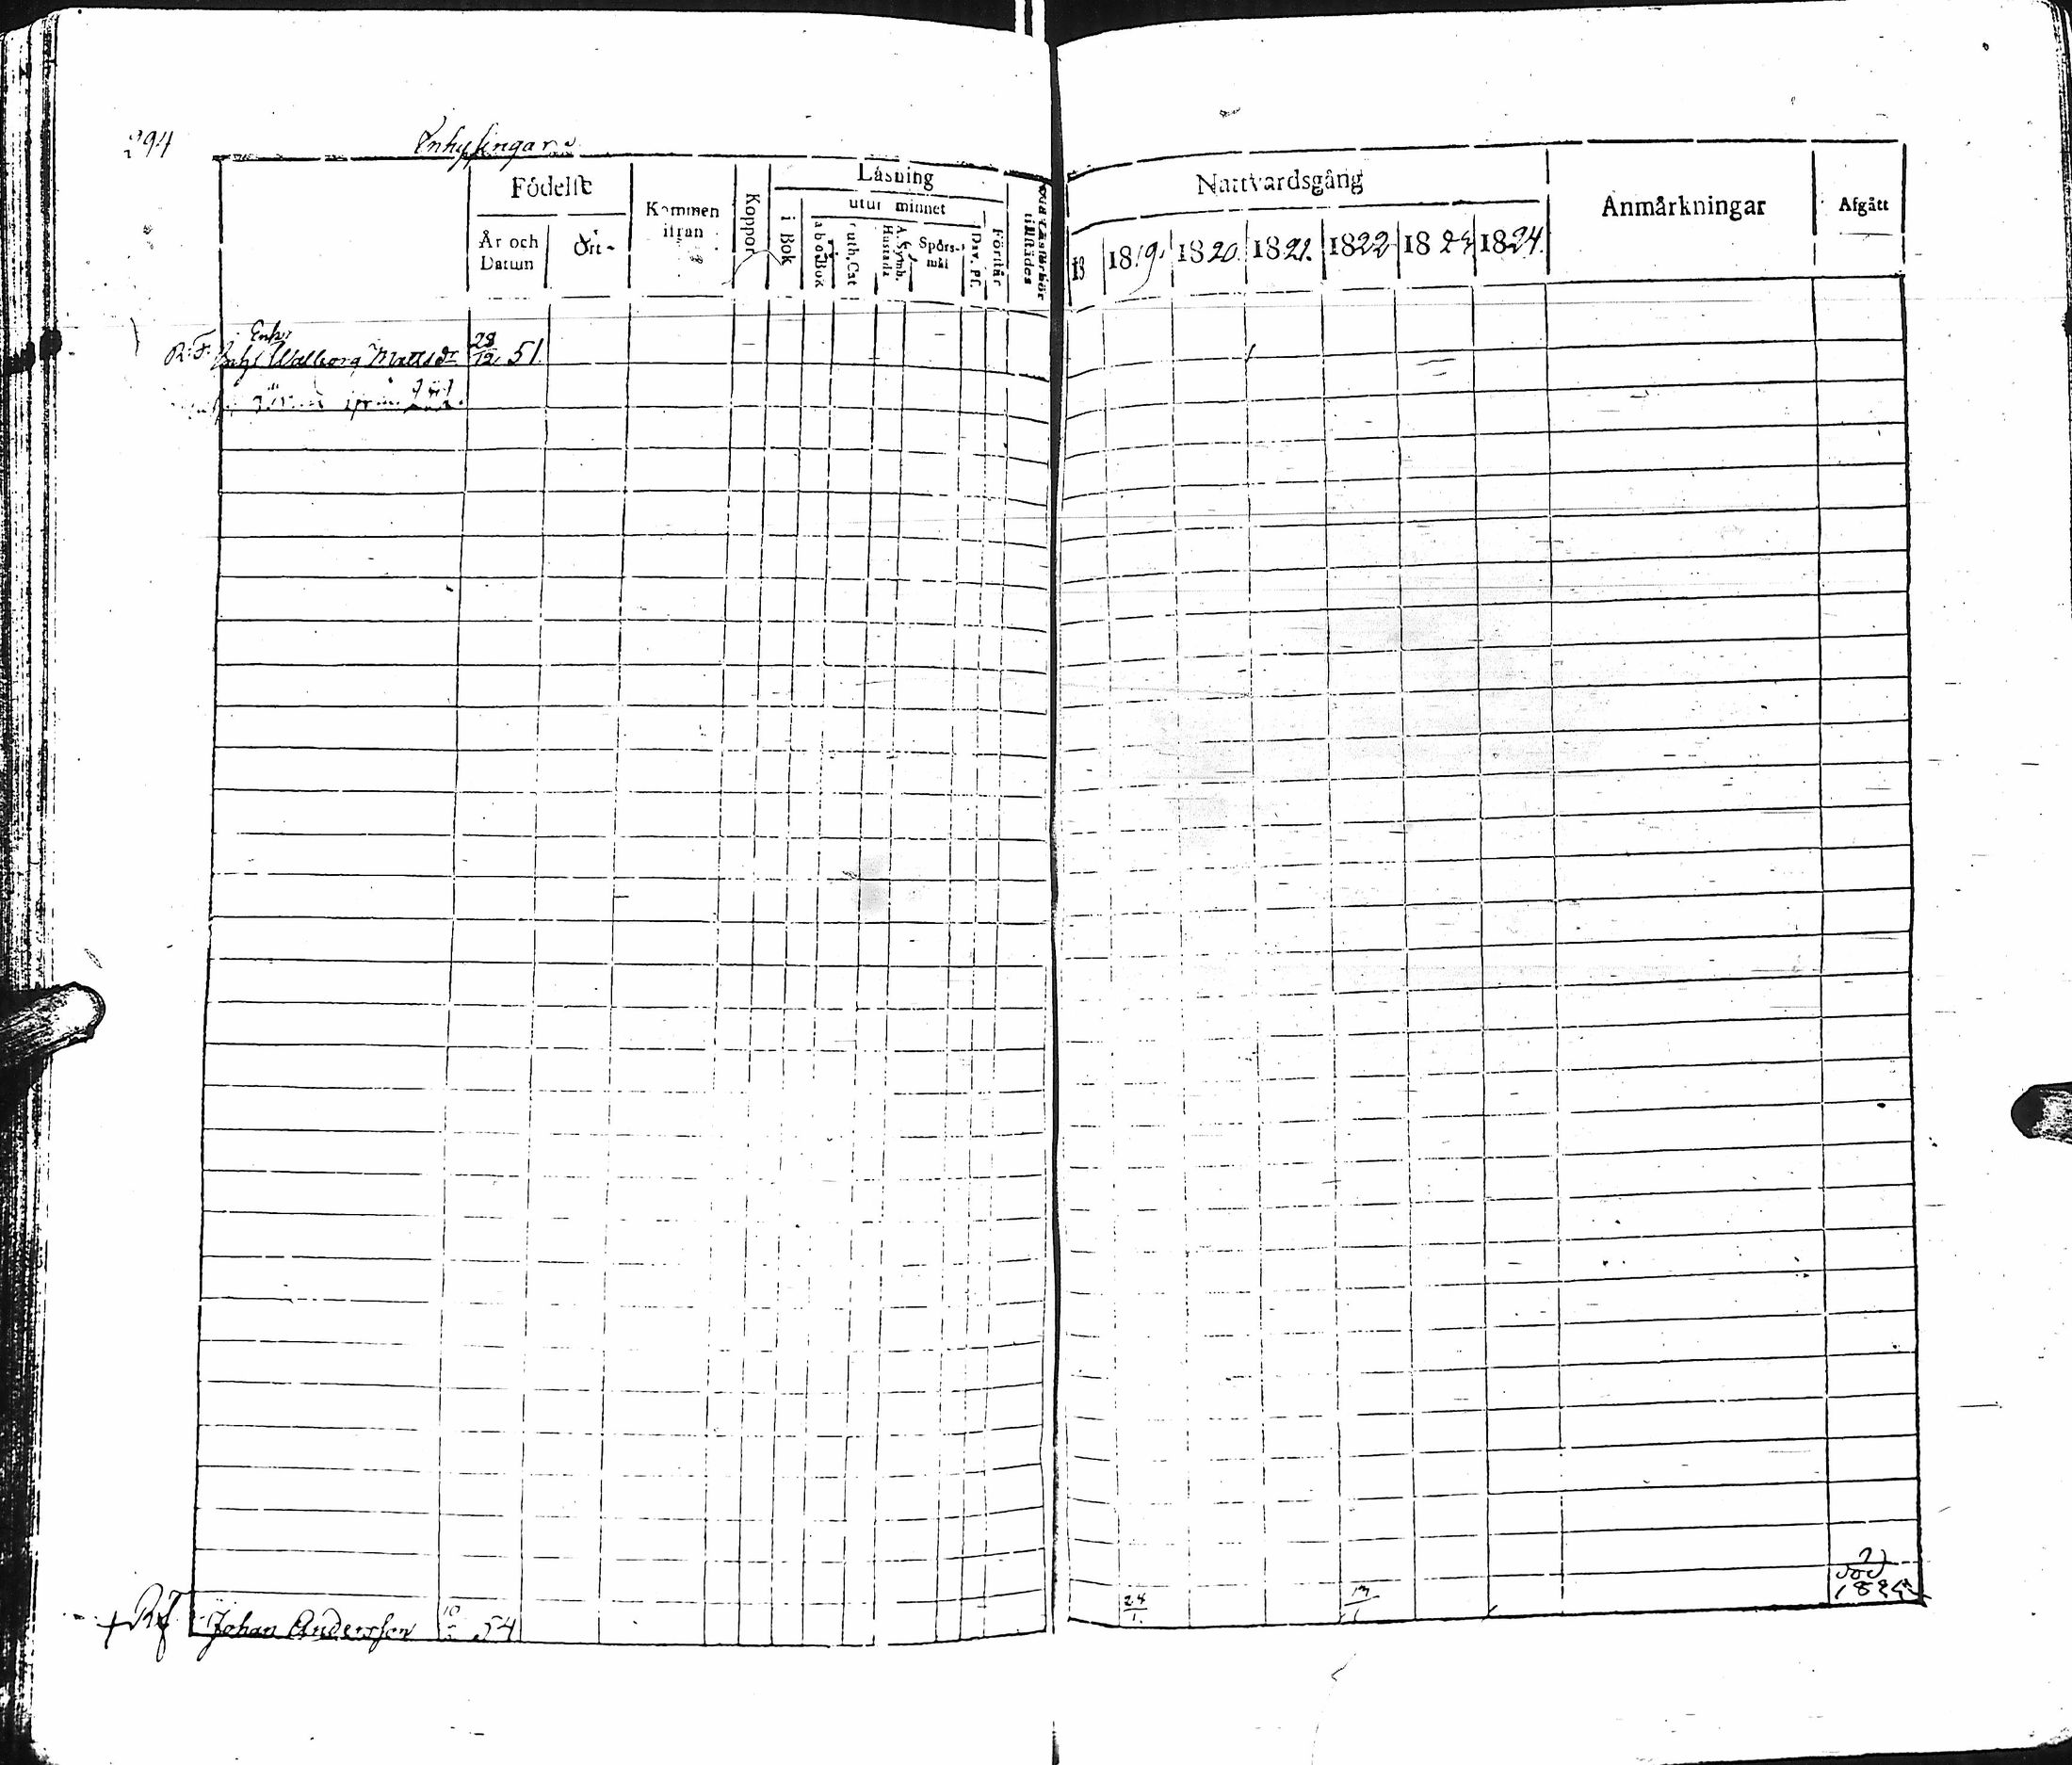 294
Inhysingar
Födelse
År och Datum
Ort
Kommen ifrån
Koppor
Läsning
i Bok
utur minnet
a b c Bok
Luth. Cat
A. Symb. Hustafla
Spörsmål
Dav. Ps.
Förstår
tillstädes
Nattvardsgång
18
1819.
1820.
1821.
1822
1823
1824.
Anmärkningar
Afgått
Enka
R. F. Inhys Walborg Mattsdr 28/12 51.
ifrån
+ Rf Johan Andersson 10 54
24/1.
död